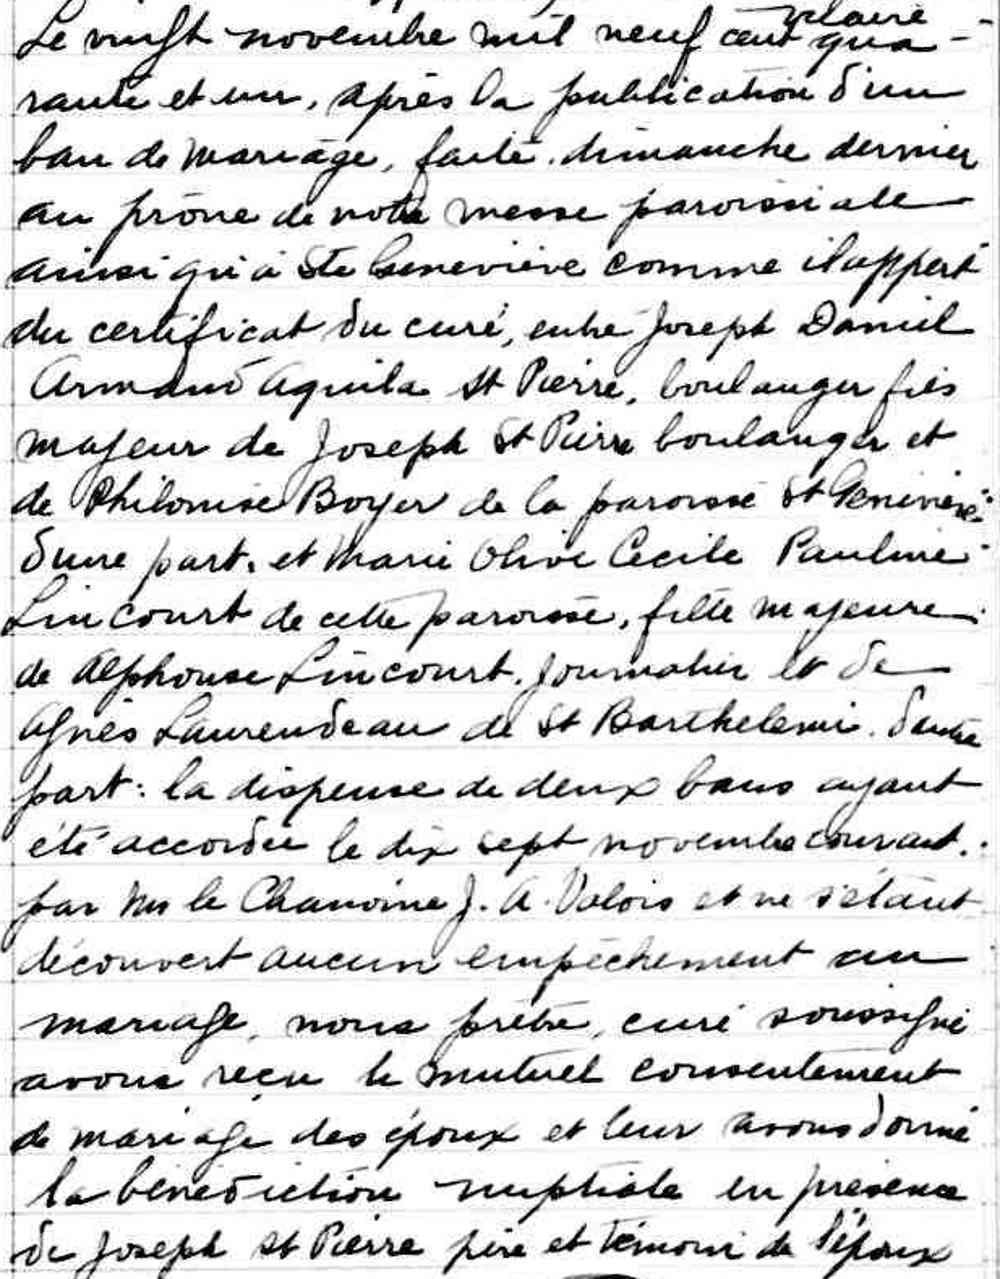 Le vingt novembre mil neuf cent qua-
rante et un, après la publication d'un
ban de mariage, faite dimanche dernier
au prône de notre messe paroissiale
ainsi qu'à Ste Geneviève comme il appert
du certificat du curé, entre Joseph Daniel
Armand Aquila St Pierre, boulanger fils
majeur de Joseph St Pierre boulanger et
de Philomise Boyer de la paroisse St Geneviève
d'une part, et Marie Olive Cecile Pauline
Lincourt de cette paroisse, fille majeure
de Alphonse Lincourt, journalier et de
Agnès Laurendeau de St Barthelemi. d'autre
part: la dispense de deux bans ayant
été accordée le dix sept novembre courant.
par Mr le Chanoine J. A. Valois et ne s'étant
découvert aucun empêchement au
mariage, nous prêtre, curé soussigné
avons reçu le mutuel consentement
de mariage des époux et leur avons donné
la bénédiction nuptiale en présence
de Joseph St Pierre père et témoin de l'époux